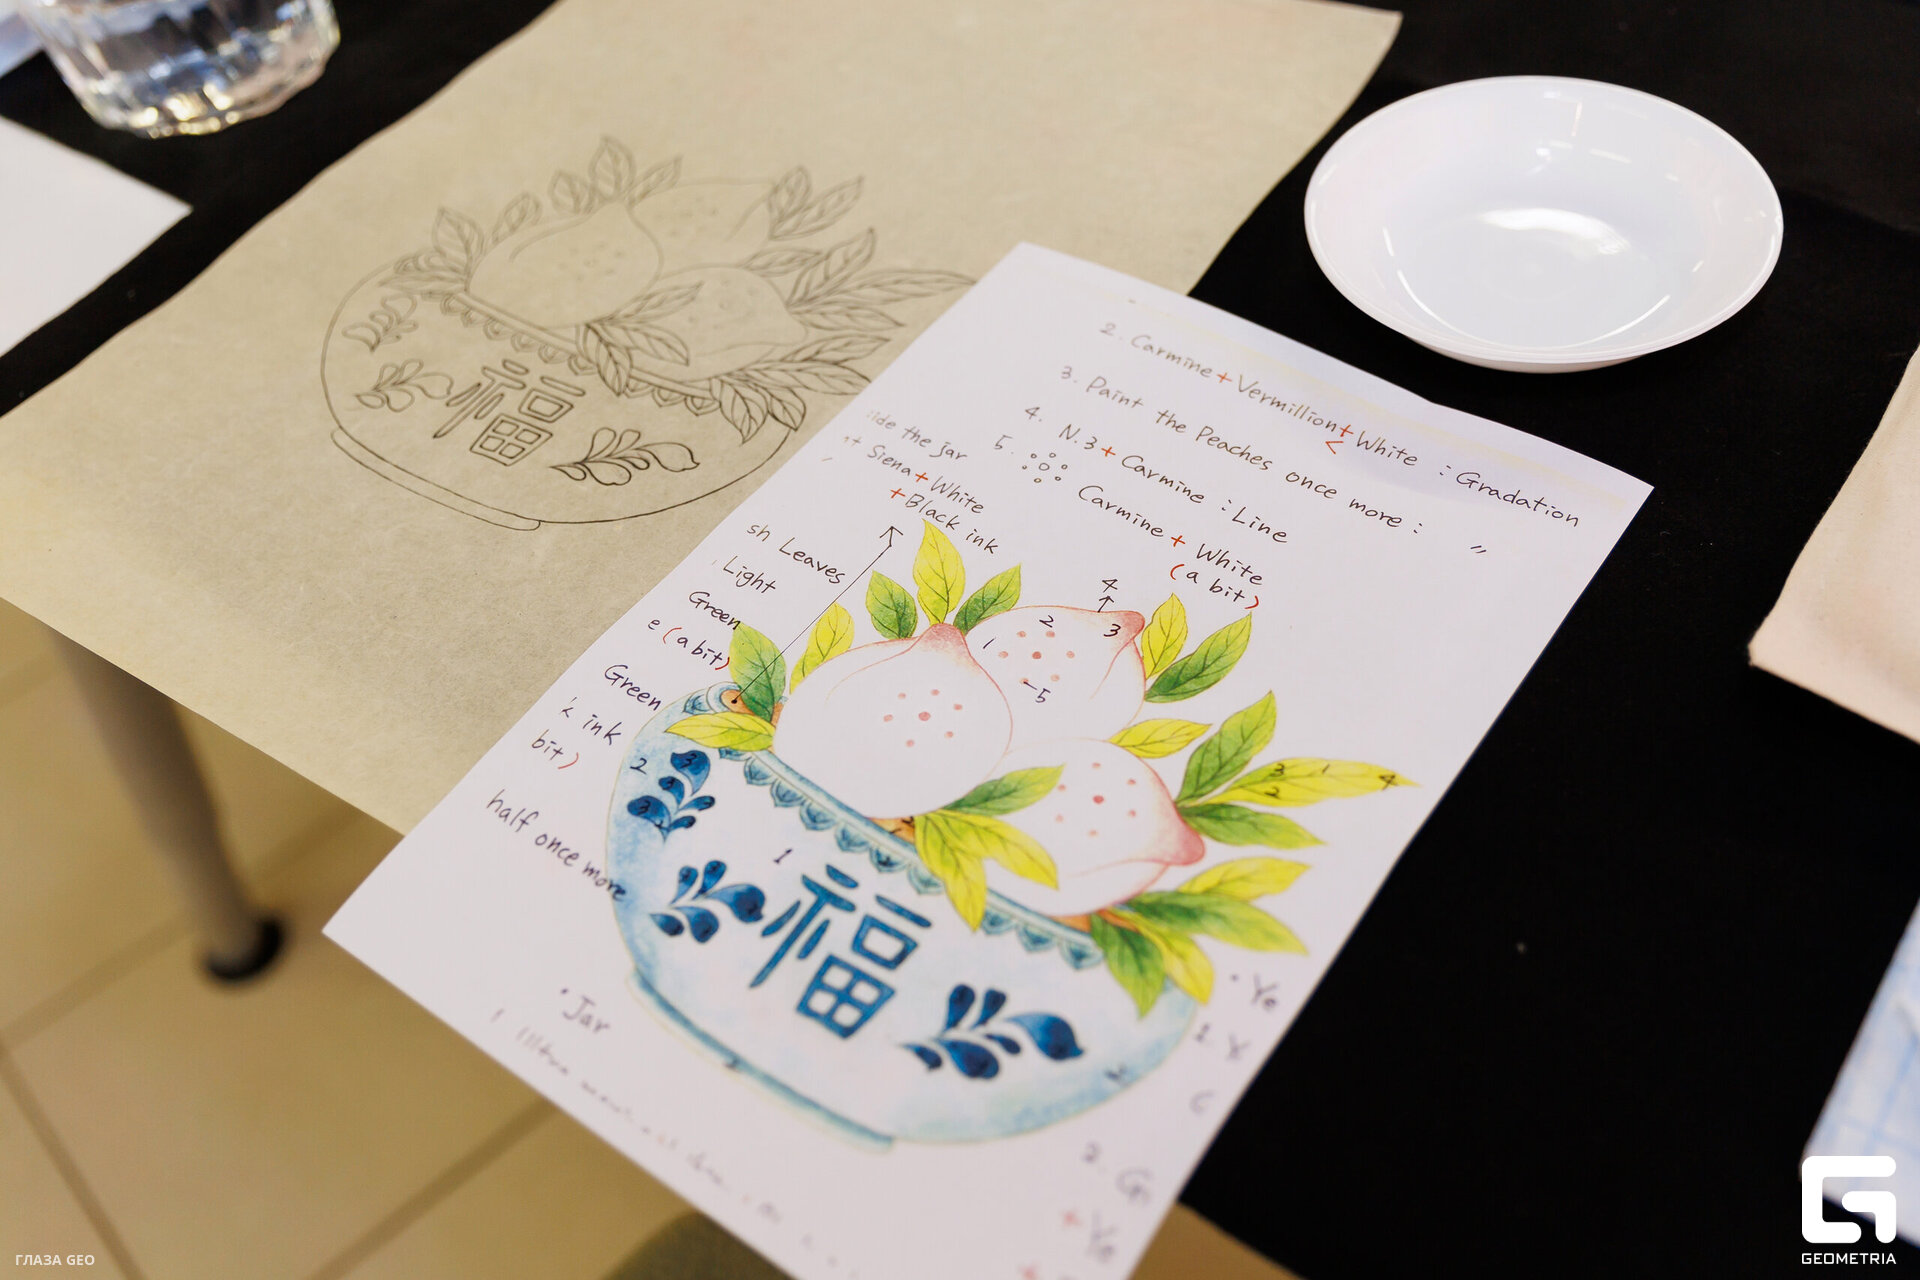 福
2. Carmine + Vermillion + White : Gradation
<
3. Paint the Peaches once more : "
4. N.3 + Carmine : Line
5. Carmine + White
(a bit)
the jar
Siena + White
+ Black ink
Leaves
Light
Green
(a bit)
Green
ink
bit)
half once more
4
2
3
1
5
3
1
4
2
2
3
3
1
福
• Jar
1
• Ye
1. Y
2. G
+ Ye
ГЛАЗА GEO
GEOMETRIA